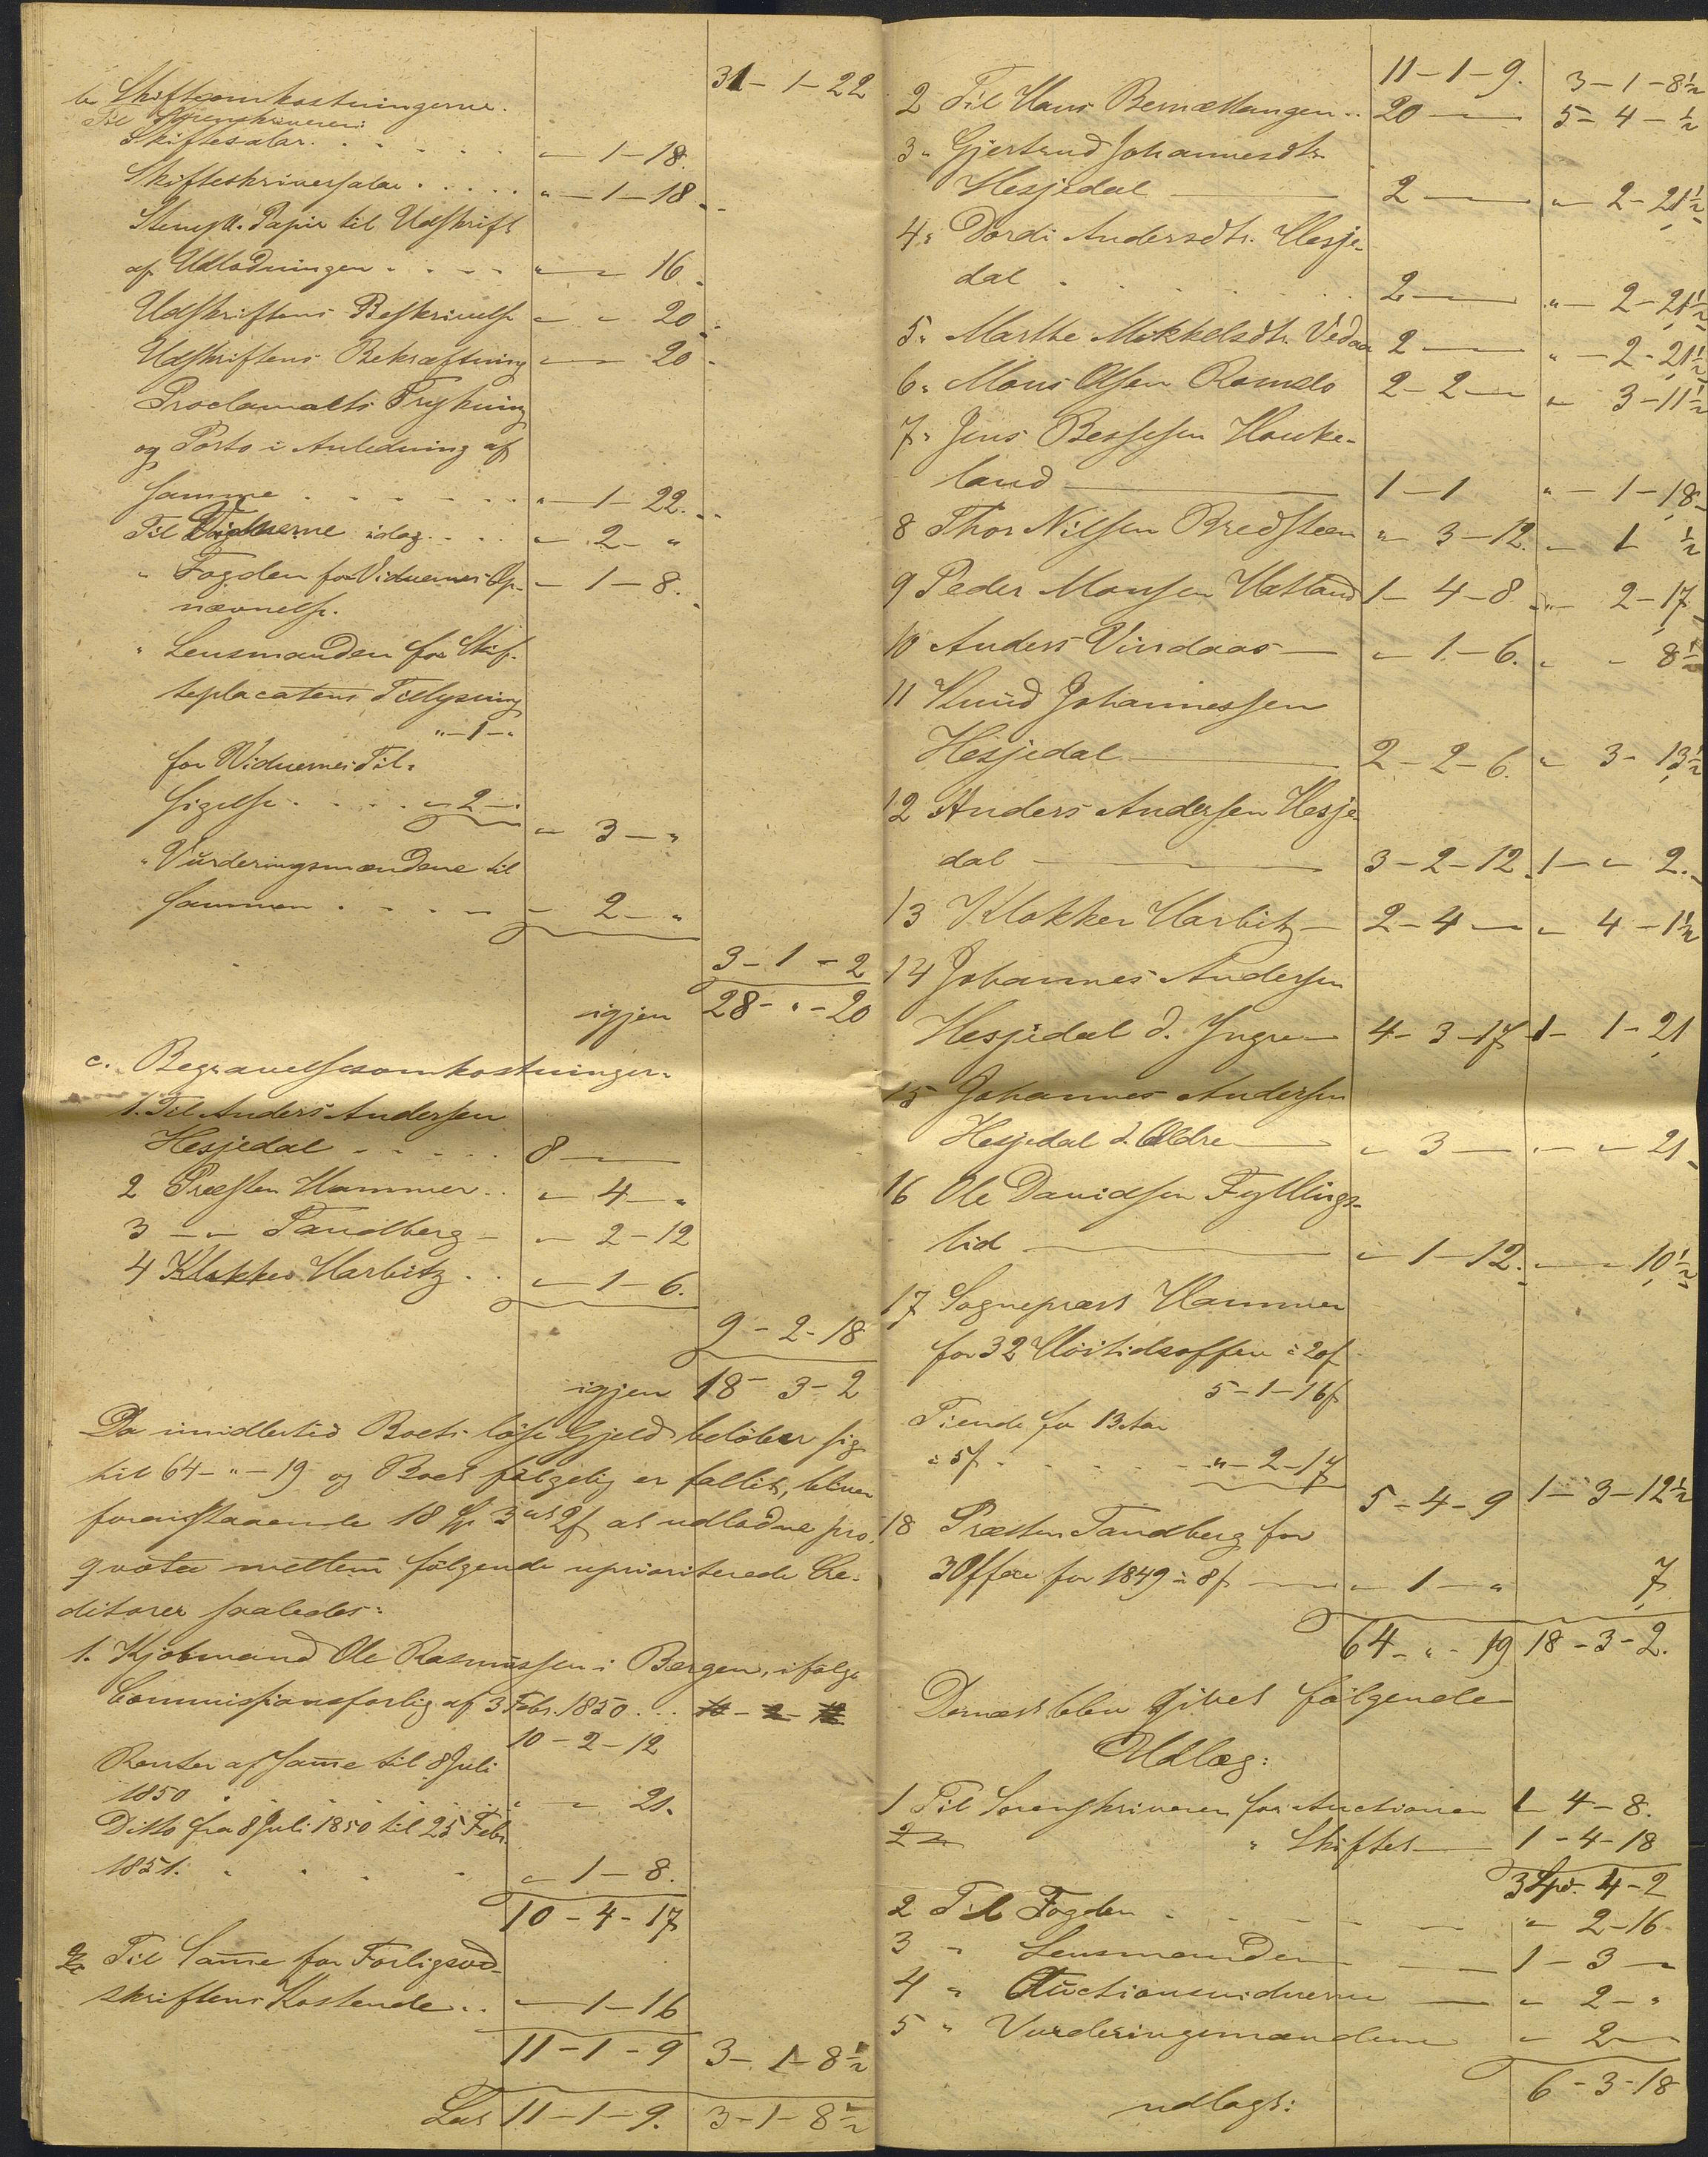 31 - 1 - 22
b. Skifteomkostningerne.
Til Sorenskriveren:
Skiftesalar . . . . . " - 1 - 18.
Skifteskriversalar . . . . . " - 1 - 18.
Stempl. Papir til Udskrift
af Udlodningen . . . . " - " 16.
Udskriftens Beskrivelse " - " 20.
Udskriftens Bekræftning " - " 20.
Proclamaets Trykning
og Porto i Anledning af
samme . . . . . . " - 1 - 22.
Til Vidnerne idag . . . " - 2 - "
" Fogden for Vidnernes Op- " - 1 - 8.
nævnelse.
" Lensmanden for Skif-
teplacatens Tillysning
" - 1 - "
for Vidnernes Til-
sigelse . . . . " - 2 - "
" - 3 - "
" Vurderingsmændene til-
sammen . . . . " - 2 - "
3 - 1 - 2
igjen 28 - " - 20
c. Begravelsesomkostninger.
1. Til Anders Andersen
Hesjedal . . . . . 8 —
2 Præsten Hammer . . " - 4 - "
3 - " - Tandberg - " - 2 - 12
4 Klokker Harbitz . . " - 1 - 6.
9 - 2 - 18
igjen 18 - 3 - 2
Da imidlertid Boets løse Gjeld beløber sig
til 64 - " - 19 og Boet følgelig er fallit, bliver
foranstaaende 18 Sp. 3 ort 2 s at udlodne pro
qvota mellem følgende uprioriterede Cre-
ditorer saaledes:
1. Kjøbmand Ole Rasmussen i Bergen, ifølge
Commissionsforlig af 3 Febr. 1850 . . .
10 - 2 - 12
Renter af Same til 8 Juli
1850 . . . . . " - " 21.
Ditto fra 8 Juli 1850 til 25 Febr.
1851. . . . " - 1 - 8.
10 - 4 - 17
Til Same for Forligsud-
skriftens Kostende . . " - 1 - 16
11 - 1 - 9 3 - 1 - 8½
Lat 11 - 1 - 9. 3 - 1 - 8½
11 - 1 - 9. 3 - 1 - 8½
2 Til Hans Bernæstangen . . 20 — 5 - 4 - ½
3 " Gjertrud Johannesdtr.
Hesjedal — 2 — " - 2 - 21½
4 " Dordi Andersdtr. Hesje-
dal . . . . . . 2 — " - 2 - 21½
5 " Marthe Mikkelsdtr. Vedaa 2 — " - 2 - 21½
6 " Mons Olsen Romslo 2 - 2 — " 3 - 11½
7 " Jens Bessesen Houke-
land — 1 - 1 " - 1 - 18.
8 Thor Nilsen Bredsteen " 3 - 12. " 1 ½
9 Peder Monsen Hatland 1 - 4 - 8. " - 2 - 17.
10 Anders Vindaas — " - 1 - 6. " - 8½
11 Knud Johannessen
Hesjedal — 2 - 2 - 6. " 3 - 13½
12 Anders Andersen Hesje
dal — 3 - 2 - 12. 1 - " 2.
13 Klokker Harbitz — 2 - 4 — " 4 - 1½
14 Johannes Andersen
Hesjedal d. Yngre — 4 - 3 - 17 1 - 1 - 21
15 Johannes Andersen
Hesjedal d. Ældre — " 3 — " - " 21
16 Ole Davidsen Fyllings-
lid — " - 1 - 12. " - 10½
17 Sognepræst Hammer
for 32 Høitidsoffere à 20 s
5 - 1 - 16 s
Tiende for 13 Aar
à 5 s . . . . . " - 2 - 17
5 - 4 - 9 1 - 3 - 12½
18 Præsten Tandberg for
3 Offere for 1849 à 8 s — " - 1 - " 7.
64 - " - 19 18 - 3 - 2.
Dernæst blev givet følgende
Udlæg:
1 Til Sorenskriveren for Auctionen 1 - 4 - 8.
" Skiftet — 1 - 4 - 18
3 Spd. 4 - 2
2 Til Fogden . . . . . " 2 - 16
3 " Lensmanden — 1 - 3 —
4 " Auctionsvidnerne — " 2 - "
5 " Vurderingsmændene " 2 —
6 - 3 - 18
udlagt: